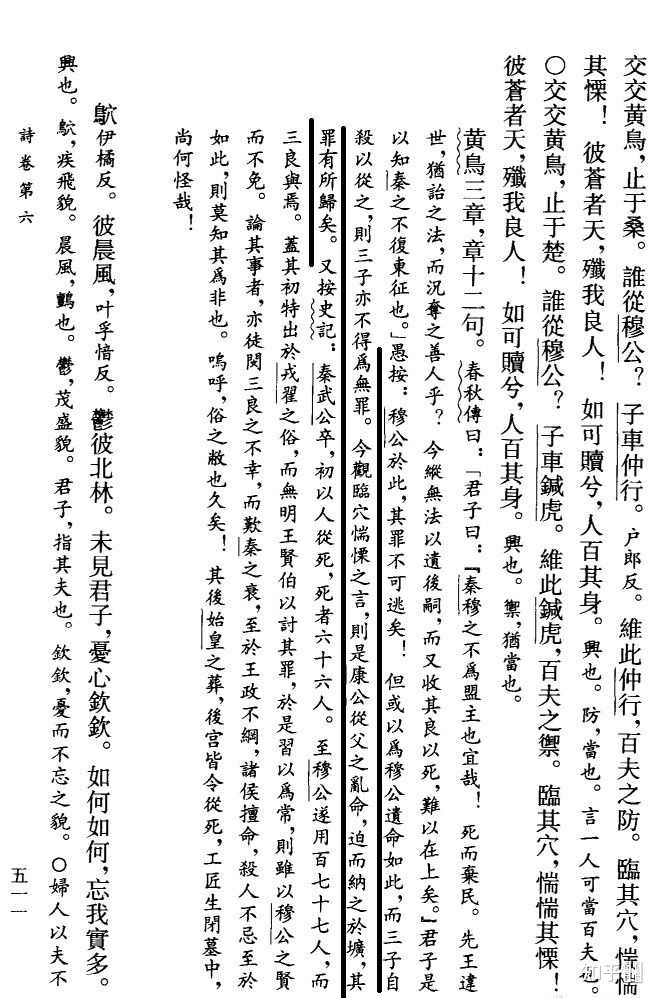 交交黃鳥，止于桑。誰從穆公？子車仲行。户郎反。維此仲行，百夫之防。臨其穴，惴惴
其慄！彼蒼者天，殲我良人！如可贖兮，人百其身。興也。防，當也。言一人可當百夫也。
○交交黃鳥，止于楚。誰從穆公？子車鍼虎。維此鍼虎，百夫之禦。臨其穴，惴惴其慄！
彼蒼者天，殲我良人！如可贖兮，人百其身。興也。禦，猶當也。
黃鳥三章，章十二句。春秋傳曰：「君子曰：『秦穆之不爲盟主也宜哉！死而棄民。先王違
世，猶詒之法，而況奪之善人乎？今縱無法以遺後嗣，而又收其良以死，難以在上矣。』君子是
以知秦之不復東征也。」愚按：穆公於此，其罪不可逃矣！但或以爲穆公遺命如此，而三子自
殺以從之，則三子亦不得爲無罪。今觀臨穴惴慄之言，則是康公從父之亂命，迫而納之於壙，其
罪有所歸矣。又按史記：秦武公卒，初以人從死，死者六十六人。至穆公遂用百七十七人，而
三良與焉。蓋其初特出於戎翟之俗，而無明王賢伯以討其罪，於是習以爲常，則雖以穆公之賢
而不免。論其事者，亦徒閔三良之不幸，而歎秦之衰，至於王政不綱，諸侯擅命，殺人不忌至於
如此，則莫知其爲非也。嗚呼，俗之敝也久矣！其後始皇之葬，後宮皆令從死，工匠生閉墓中，
尚何怪哉！
鴥伊橘反。彼晨風，叶孚愔反。鬱彼北林。未見君子，憂心欽欽。如何如何，忘我實多。
興也。鴥，疾飛貌。晨風，鸇也。鬱，茂盛貌。君子，指其夫也。欽欽，憂而不忘之貌。○婦人以夫不
詩卷第六
五一一